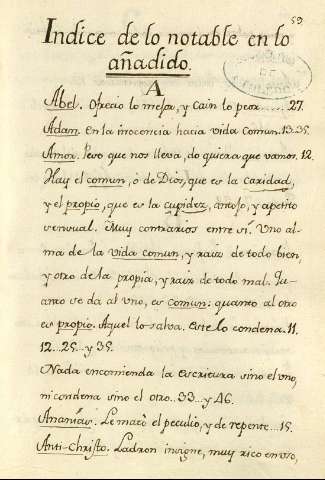 59
Indice de lo notable en lo
añadido.
A
Abel. Ofrecio lo mejor, y Cain lo peor......27.
Adam. En la inocencia hacia vida comun. 13.35.
Amor. Peso que nos lleva, do quiera que vamos. 12.
Hay el comun, ò de Dios, que es la caridad,
y el propio, que es la cupidez, antojo, y apetito
sensual. Muy contrarios entre sí. Uno al-
ma de la vida comun, y raiz de todo bien,
y otro de la propia, y raiz de todo mal. Qu-
anto se da al uno, es comun: quanto al otro
es propio. Aquel lo salva. Este lo condena. 11.
12...25...y 35.
Nada encomienda la escritura sino el uno,
ni condena sino el otro...33. y 46.
Ananías. Le matò el peculio, y de repente...15.
Anti-Christo. Ladron insigne, muy rico en oro,